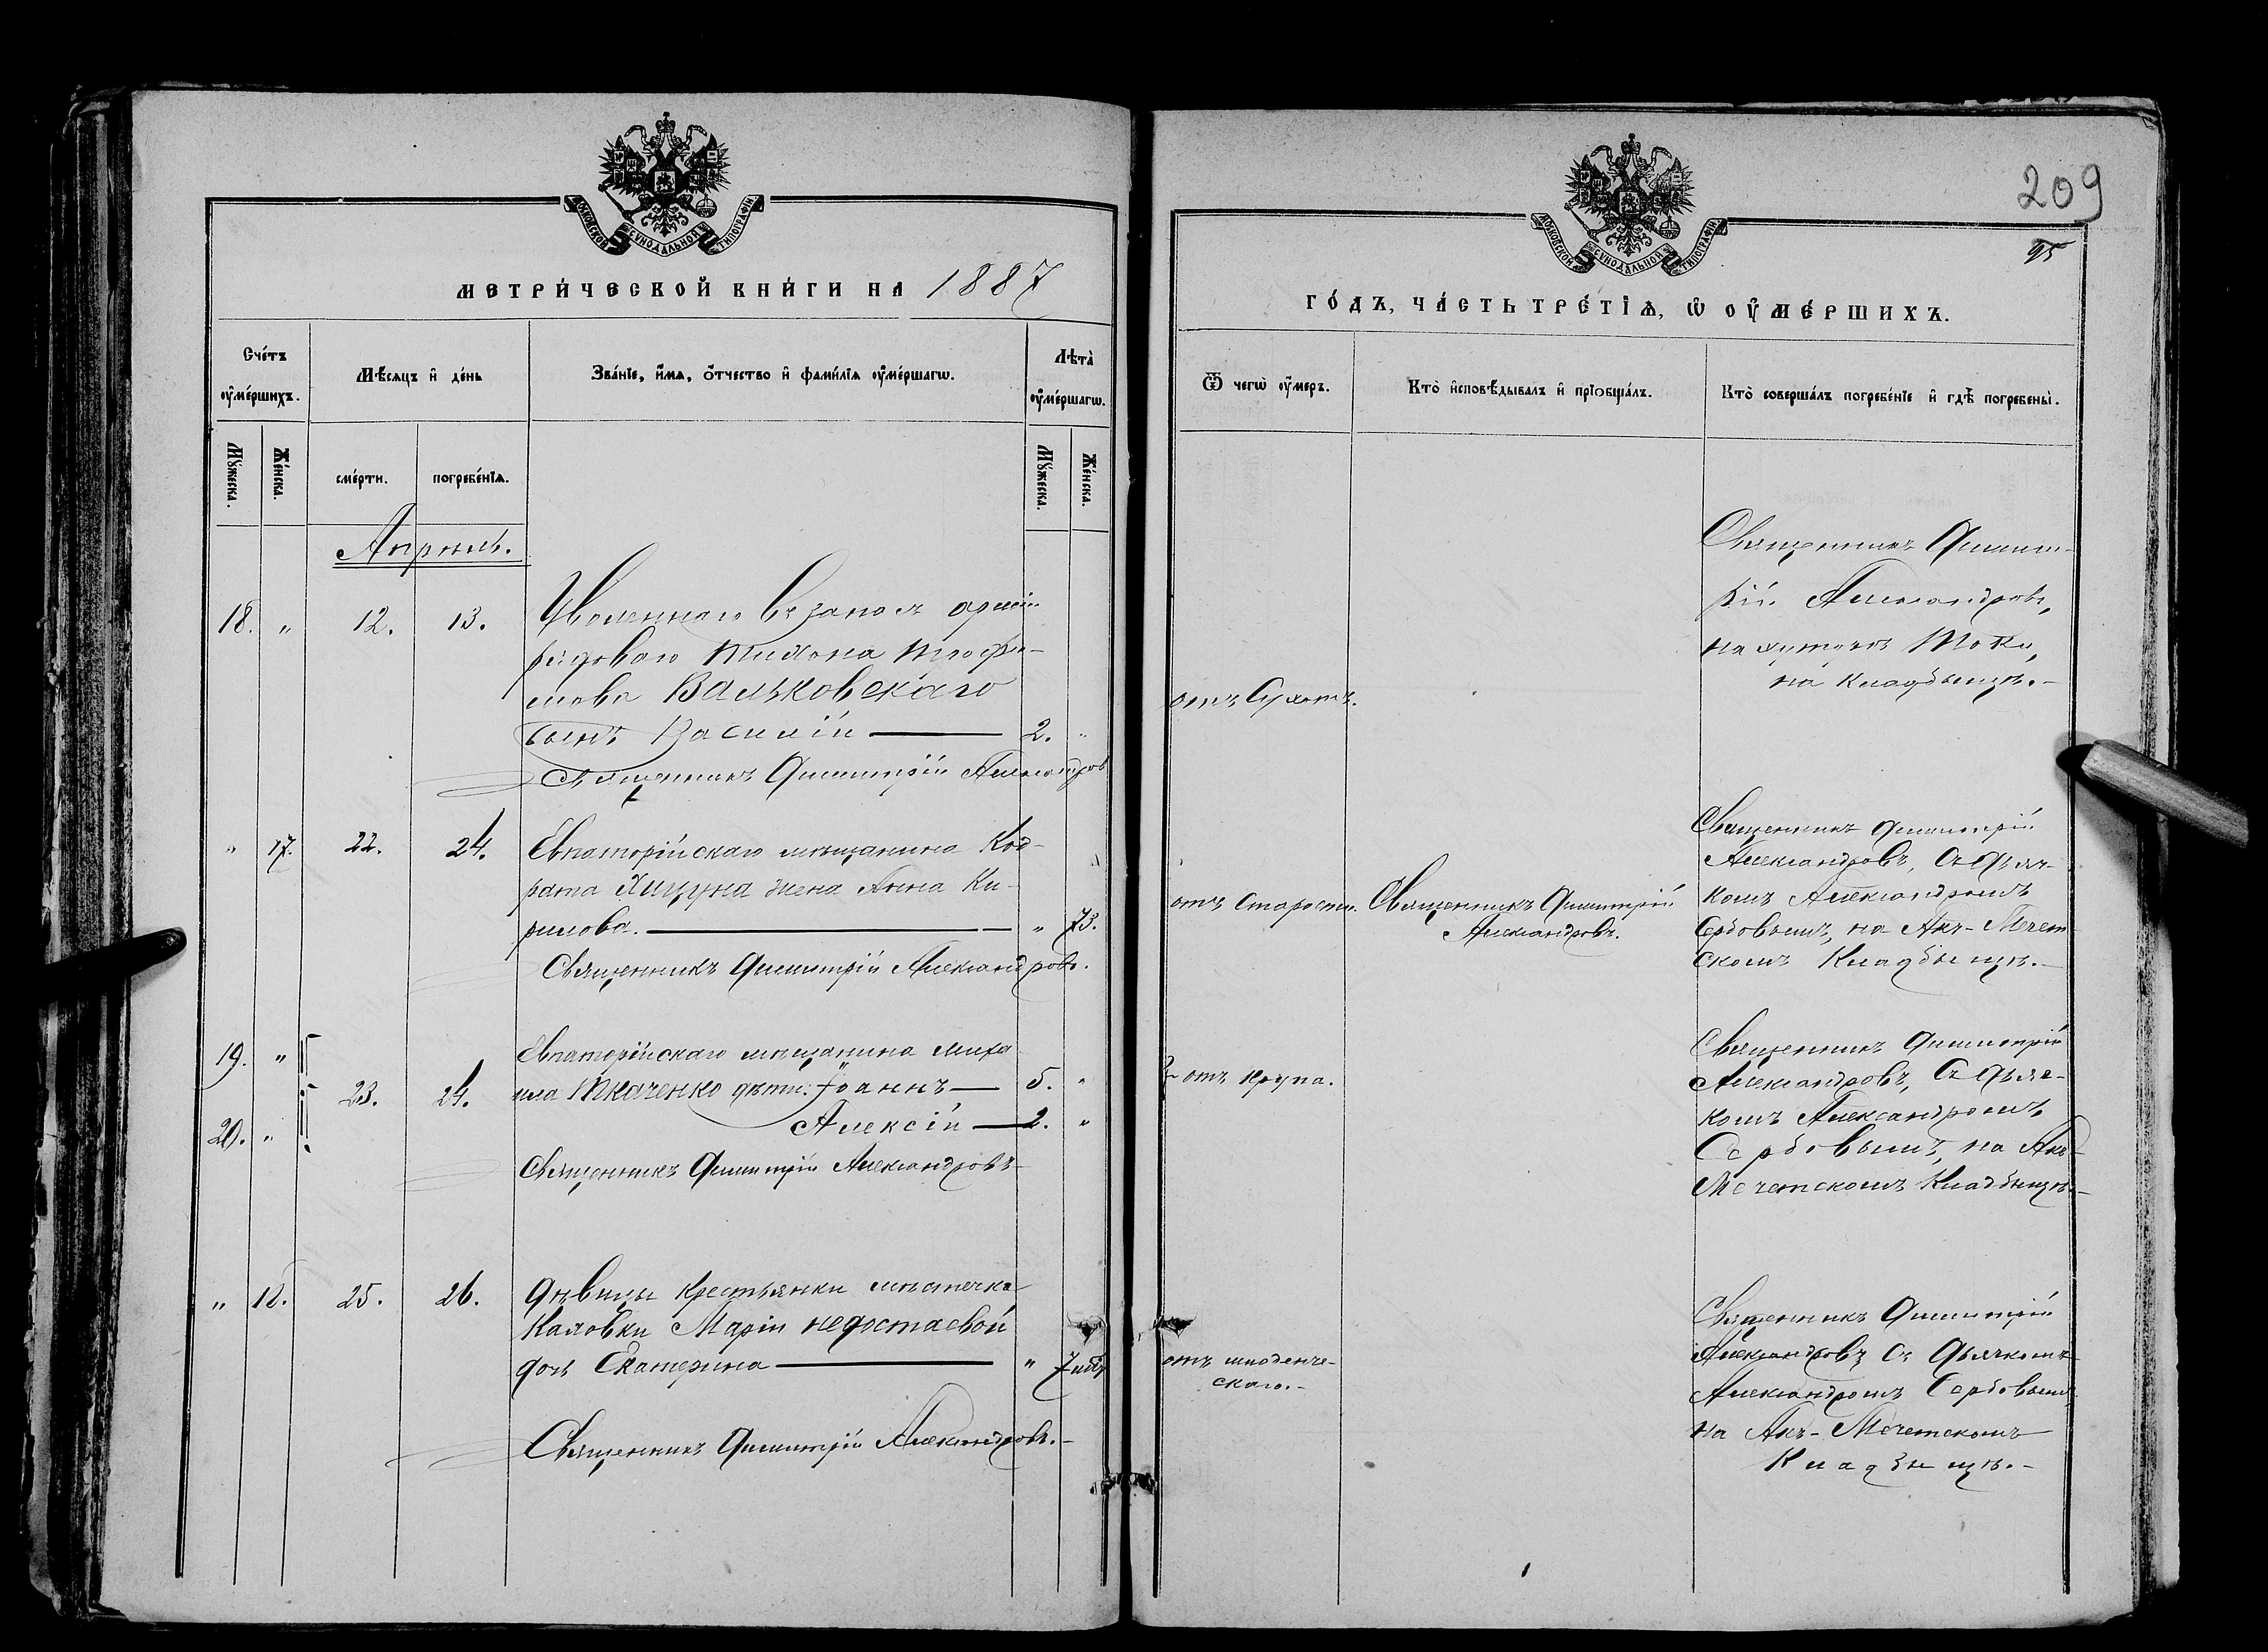 МОСКОВСКОЙ СУНОДАЛЬНОЙ ТИПОГРАФІИ
МЕТРИ́ЧЕСКОЙ КНИ́ГИ НА 1887
Сче́тъ ѹ҆ме́ршихъ.
Мѣ́сяцъ и҆ де́нь
Зва́нїе, и҆́мя, ѻ҆́тчество и҆ фами́лїя ѹ҆ме́ршагѡ.
Лѣта̀ ѹ҆ме́ршагѡ.
Мꙋ́жеска.
Же́нска.
сме́рти.
погребе́нїѧ.
Мꙋ́жеска.
Же́нска.
Апрѣль.
18. " 12. 13. Уволеннаго въ запасъ арміи
рядоваго Тихона
Вальковскаго
сынъ Василій — 2. "
Священникъ Димитрій Александровъ
" 17. 22. 24. Евпаторійскаго мѣщанина Код-
рата Хицуна жена Анна Ки-
рилова. — " 73.
Священникъ Димитрій Александровъ.
19. " Евпаторійскаго мѣщанина Миха-
23. 24. ила Ткаченко дѣти: Іоаннъ — 5. "
20. " Алексій — 2. "
Священникъ Димитрій Александровъ
" 18. 25. 26. Дѣвицы крестьянки мѣстечка
Каховки Маріи Недостаевой
дочь Екатерина — " 7 мѣс.
Священникъ Димитрій Александровъ. —
209
95
МОСКОВСКОЙ СУНОДАЛЬНОЙ ТИПОГРАФІИ
ГО́ДЪ, ЧА́СТЬ ТРЕ́ТІѦ, Ѡ҆ ОУ҆МЕ́РШИХЪ.
Ѿ чегѡ̀ ѹ҆́меръ.
Кто̀ и҆сповѣ́дывалъ и҆ прїобща́лъ.
Кто̀ соверша́лъ погребе́нїе и҆ гдѣ̀ погребены̀.
отъ Сухотъ.
Священникъ Димит-
рій Александровъ,
на хуторѣ
на кладбищѣ. —
отъ Старости.
Священникъ Димитрій
Александровъ.
Священникъ Димитрій
Александровъ, съ Дьяч-
комъ Александромъ
Сербовымъ, на Акъ-Мечет-
скомъ Кладбищѣ. —
отъ крупа.
Священникъ Димитрій
Александровъ, съ Дьяч-
комъ Александромъ
Сербовымъ, на Акъ-
Мечетскомъ Кладбищѣ. —
отъ младенче-
скаго. —
Священникъ Димитрій
Александровъ съ Дьячкомъ
Александромъ Сербовымъ,
на Акъ-Мечетскомъ
Кладбищѣ. —